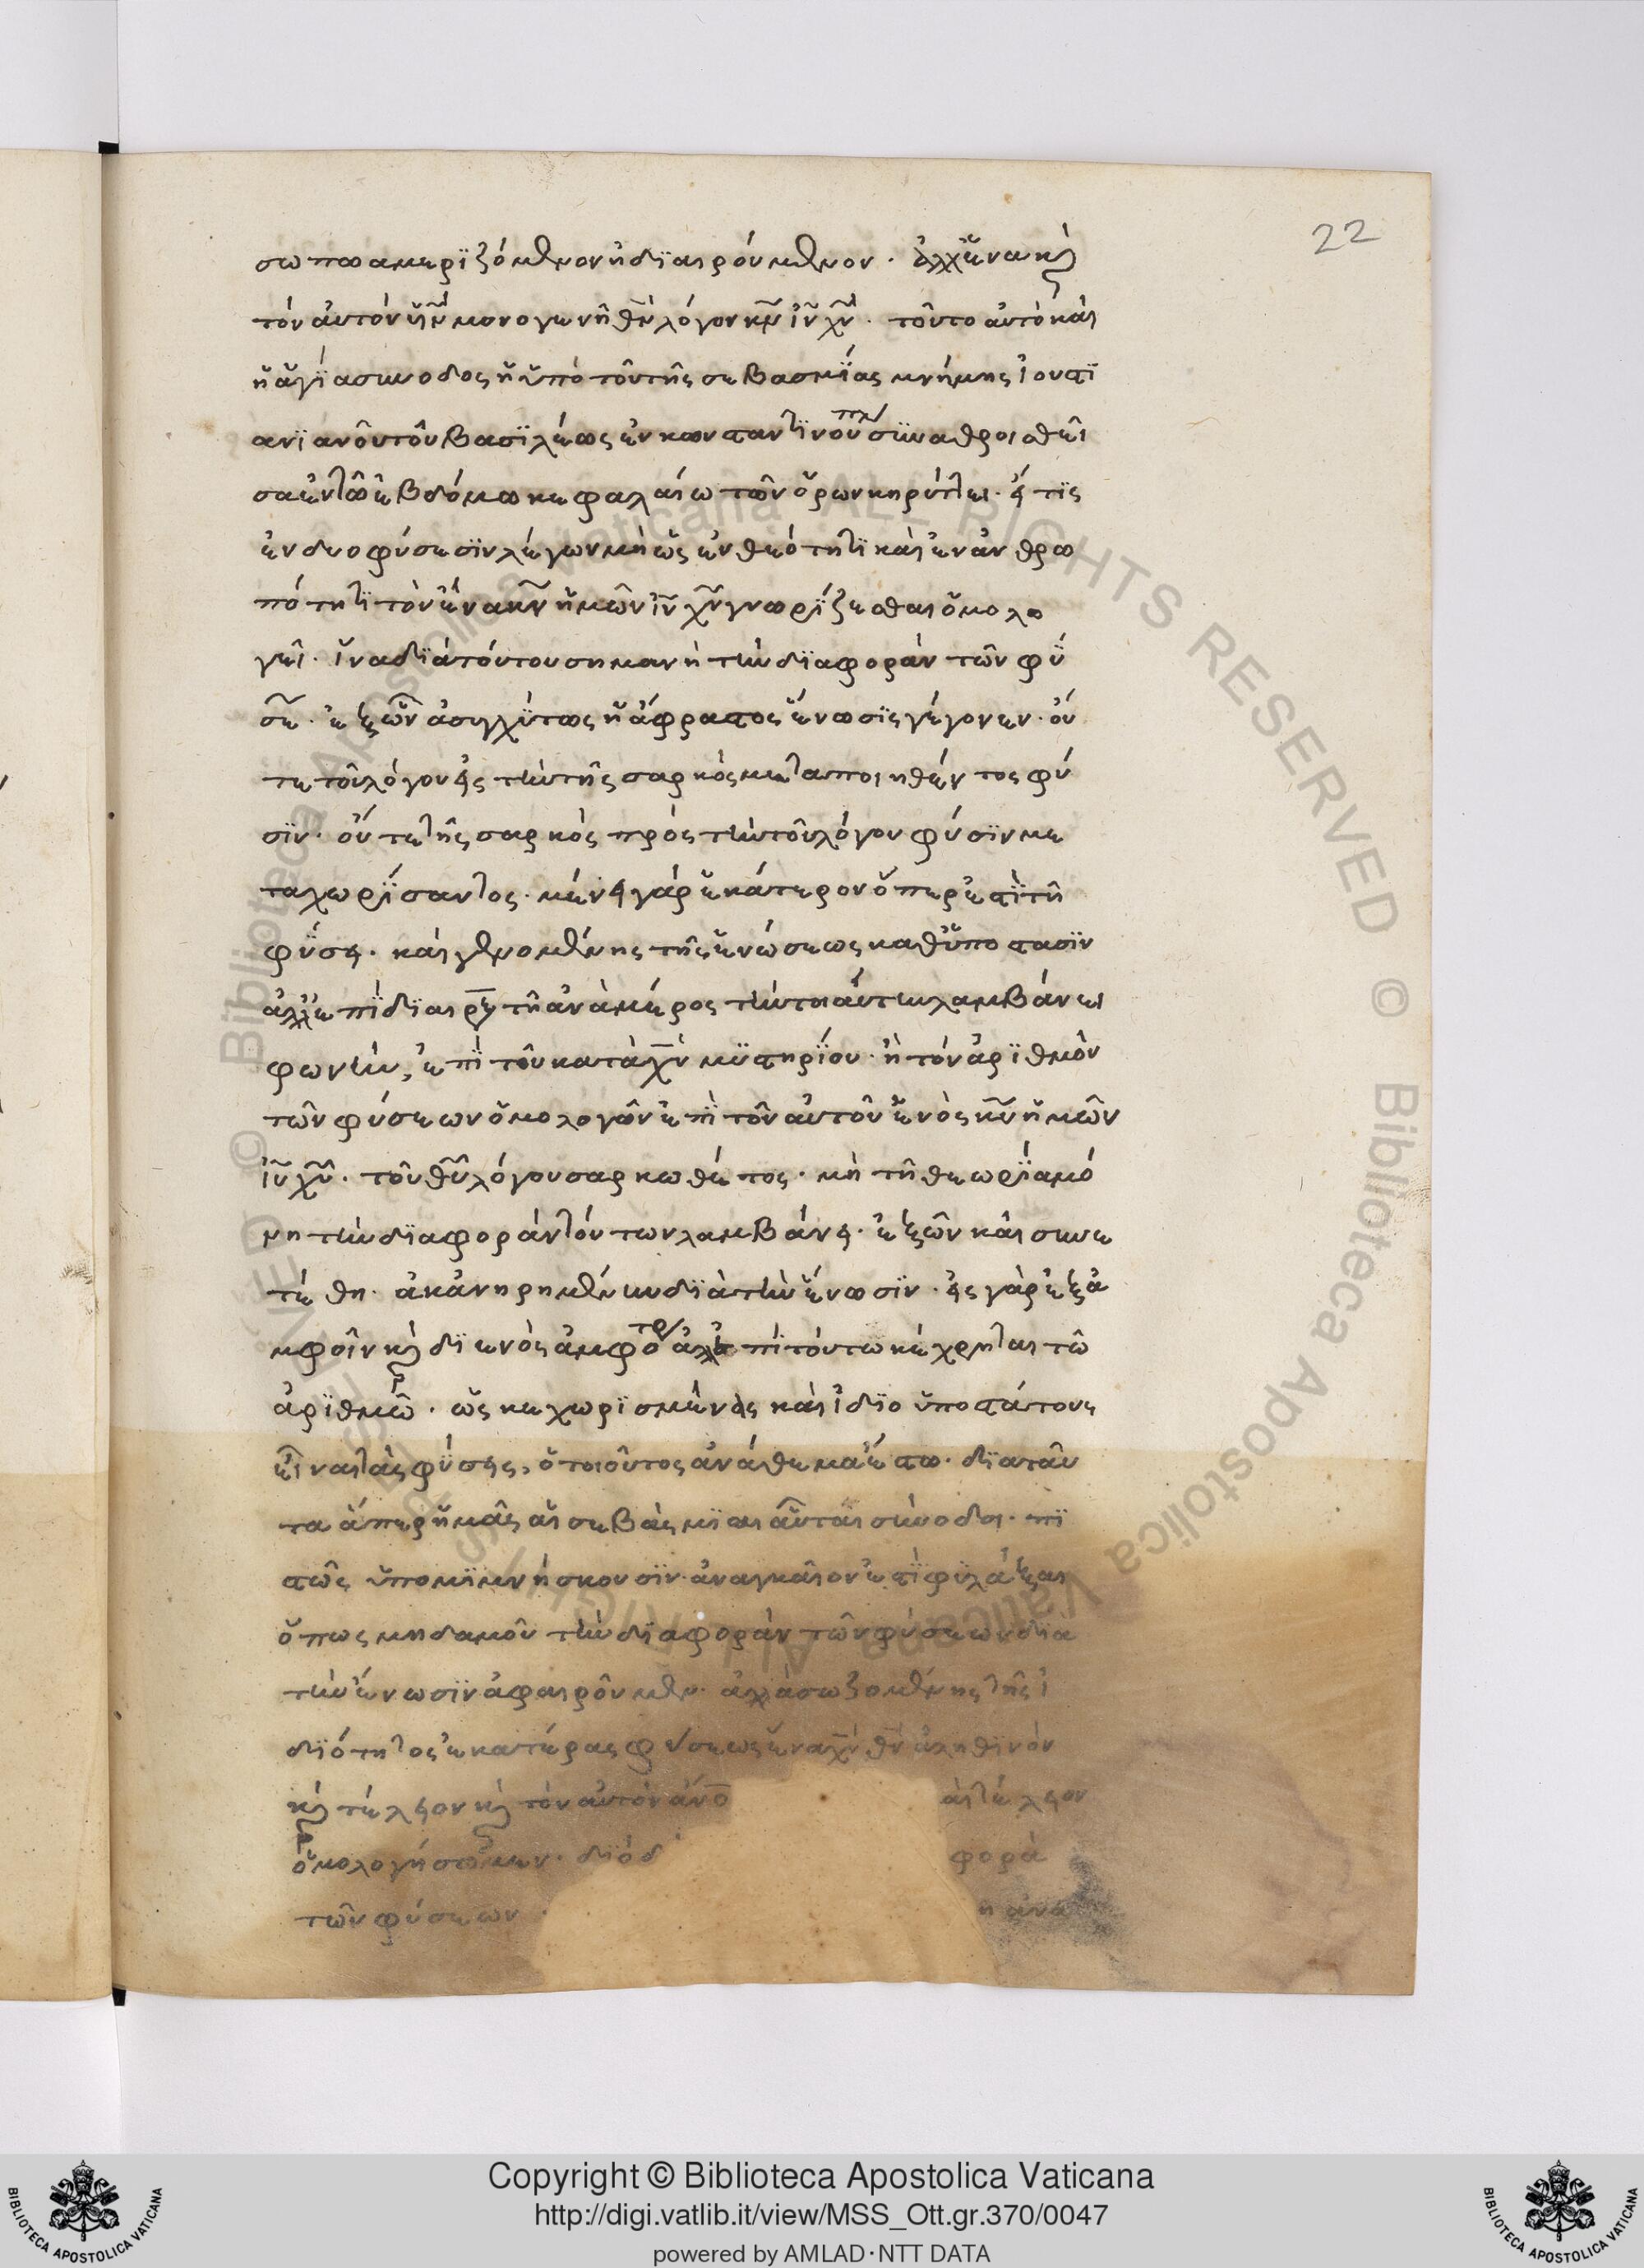 22
σωπα μεριζόμενον ἢ διαιρούμενον· ἀλλ' ἕνα κ(αὶ)
τὸν αὐτὸν υἱν μονογενῆ θν λόγον κν ἰν χν· τοῦτο αὐτὸ καὶ
ἡ ἁγία συνοδος ἡ ὑπὸ τοῦ τῆς σεβασμίας μνήμης ἰουστϊ
ανϊανοῦ τοῦ βασϊλέως ἐν κωνσταντϊνουπλ συναθροισθεῖ
σα ἐν τῶ ἑβδόμω κεφαλαίω τῶν ὅρων κηρύττει· εἴ τϊς
ἐν δυο φύσεσϊν λέγων μὴ ὡς ἐν θεότητϊ καὶ ἐν ἀνθρω
πότητϊ τὸν ἕνα κν ἡμῶν ἰν χν γνωρϊζεσθαι ὁμολο
γεῖ· ἵνα δϊὰ τούτου σημανη τὴν δϊαφορὰν τῶν φύ
σε· ἐξ ὧν ἀσυγχύτως ἡ ἄφραστος ἕνωσϊς γέγονεν· οὔ
τε τοῦ λόγου εἰς τὴν τῆς σαρκὸς μεταποιηθέντος φύ
σϊν· οὔτε τῆς σαρκὸς πρὸς τὴν τοῦ λόγου φύσϊν με
ταχωρϊσαντος· μένει γὰρ ἑκάτερον ὅπερ ἐστὶ τῆ
φύσει· καὶ γενομένης τῆς ἑνώσεως καθ' ὑποστασϊν
ἀλλ' ἐπϊ δϊαιρέσει τῆ ἀνὰ μέρος τὴν τοιαύτην λαμβάνει
φωνὴν, ἐπϊ τοῦ κατὰ χν μϋστηρϊου· ἢ τὸν ἀρϊθμὸν
τῶν φύσεων ὁμολογῶν ἐπϊ τοῦ αὐτοῦ ἑνὸς κυ ἡμῶν
ἰυ χυ· τοῦ θυ λόγου σαρκωθέντος· μὴ τῆ θεωρϊα μό
νη τὴν δϊαφορὰν τούτων λαμβάνει· ἐξ ὧν καὶ συνε
τέθη· οὐκ ἀνηρημένην δϊὰ τὴν ἕνωσϊν· εἷς γὰρ ἐξ ἀ
μφοῖν κ(αὶ) δϊ ἑνὸς ἀμφοτρ ἀλλ' ἐπϊ τούτω κέχρηται τῶ
ἀρϊθμῶ· ὡς κεχωρϊσμένας καὶ ἰδϊοϋποστάτους
εἶναι τὰς φύσεις, ὁ τοιοῦτος ἀνάθεμα ἔστω· δϊα ταῦ
τα ἅπερ ἡμᾶς αἱ σεβάσμϊαι αὗται σύνοδοι· πϊ
στῶς ὑπομϊμνήσκουσϊν· ἀναγκαῖον ἐστὶ φϋλάξαι
ὅπως μηδαμοῦ τὴν δϊαφορὰν τῶν φύσεων δϊὰ
τὴν ἕνωσϊν ἀφαιροῦμεν· ἀλλὰ σωζομένης τῆς ἰ
δϊότητος ἑκατέρας φύσεως ἕνα χν θν ἀληθϊνὸν
κ(αὶ) τέλειον κ(αὶ) τὸν αὐτὸν ἄνο τέλειον
ὁμολογήσωμεν· δϊὸ φορὰ
τῶν φύσεων